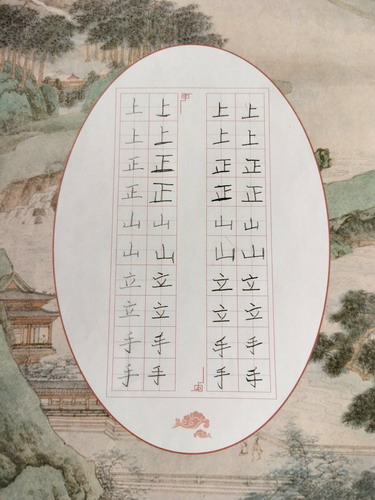 上上正正山山立立手手
上上正正山山立立手手
上上正正山山立立手手
上上正正山山立立手手